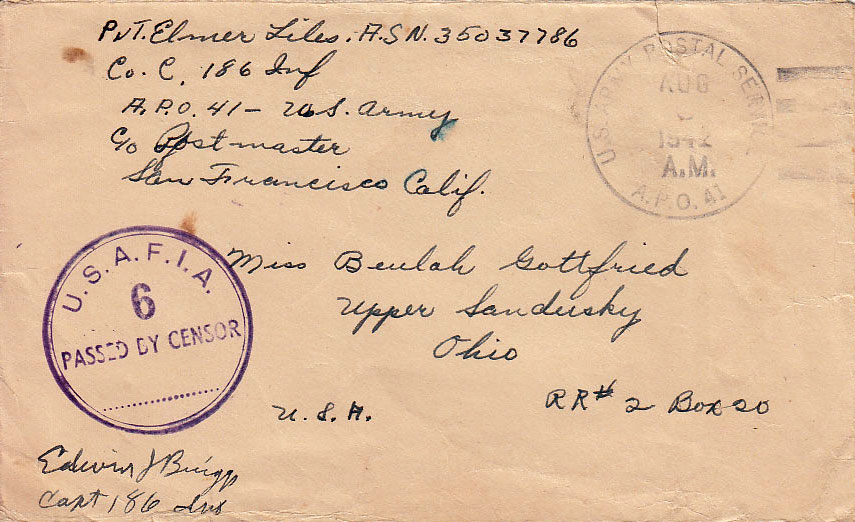 Pvt. Elmer Liles. A.S.N. 35037786
Co. C, 186 Inf
A.P.O. 41 - U.S. Army
c/o Postmaster
San Francisco Calif.
U.S. ARMY POSTAL SERVICE
AUG
1942
A.M.
A.P.O. 41
U.S.A.F.I.A.
6
PASSED BY CENSOR
Miss Beulah Gottfried
Upper Sandusky
Ohio
RR# 2 Box 20
U.S.A.
Edwin J
Capt 186 Inf